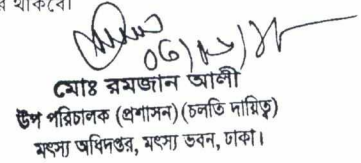 থাকবে।
০৫/১২/১৮
মোঃ রমজান আলী
উপ পরিচালক (প্রশাসন) (চলতি দায়িত্ব)
মৎস্য অধিদপ্তর, মৎস্য ভবন, ঢাকা।